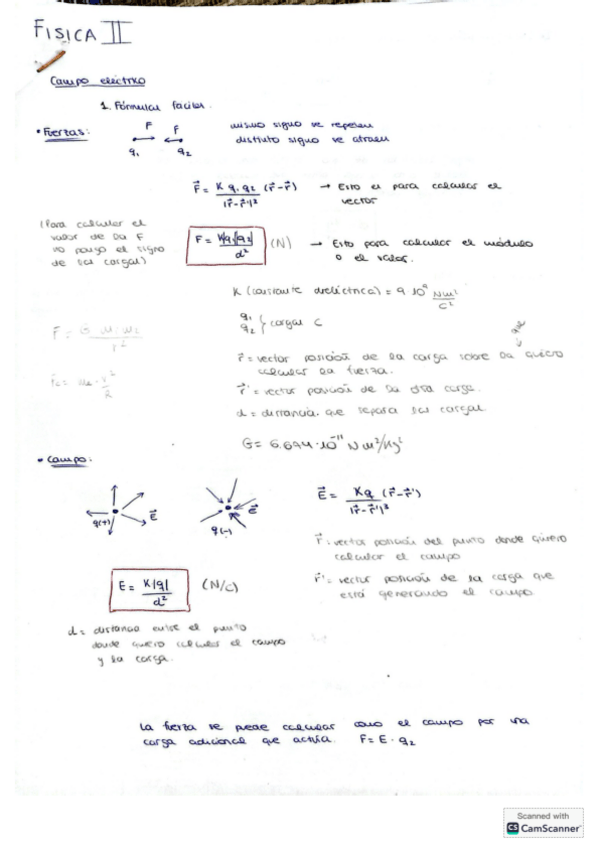 FISICA II
Campo eléctrico
1. Fórmulas faciles.
• Fuerzas:
F F
q₁ q₂
mismo signo se repelen
distinto signo se atraen
F⃗ = K q₁ q₂ (r⃗ - r⃗') / |r⃗ - r⃗'|³ → Esto es para calcular el
vector
(Para calcular el
valor de la F
no pongo el signo
de las cargas)
F = K|q₁||q₂| / d² (N) → Esto para calcular el módulo
o el valor.
K (constante dieléctrica) = 9·10⁹ Nm²/C²
q₁
q₂ } cargas C
F = G m₁ m₂ / r²
r⃗ = vector posición de la carga sobre la que quiero
calcular la fuerza.
r⃗' = vector posición de la otra carga.
d = distancia que separa las cargas
G = 6.694·10⁻¹¹ Nm²/Kg²
• Campo:
q(+) E⃗
q(-) E⃗
E⃗ = Kq (r⃗ - r⃗') / |r⃗ - r⃗'|³
r⃗: vector posición del punto donde quiero
calcular el campo
r⃗': vector posición de la carga que
está generando el campo.
E = K|q| / d² (N/C)
d = distancia entre el punto
donde quiero calcular el campo
y la carga.
La fuerza se puede calcular como el campo por una
carga adicional que actúa. F = E · q₂
Scanned with
CS CamScanner